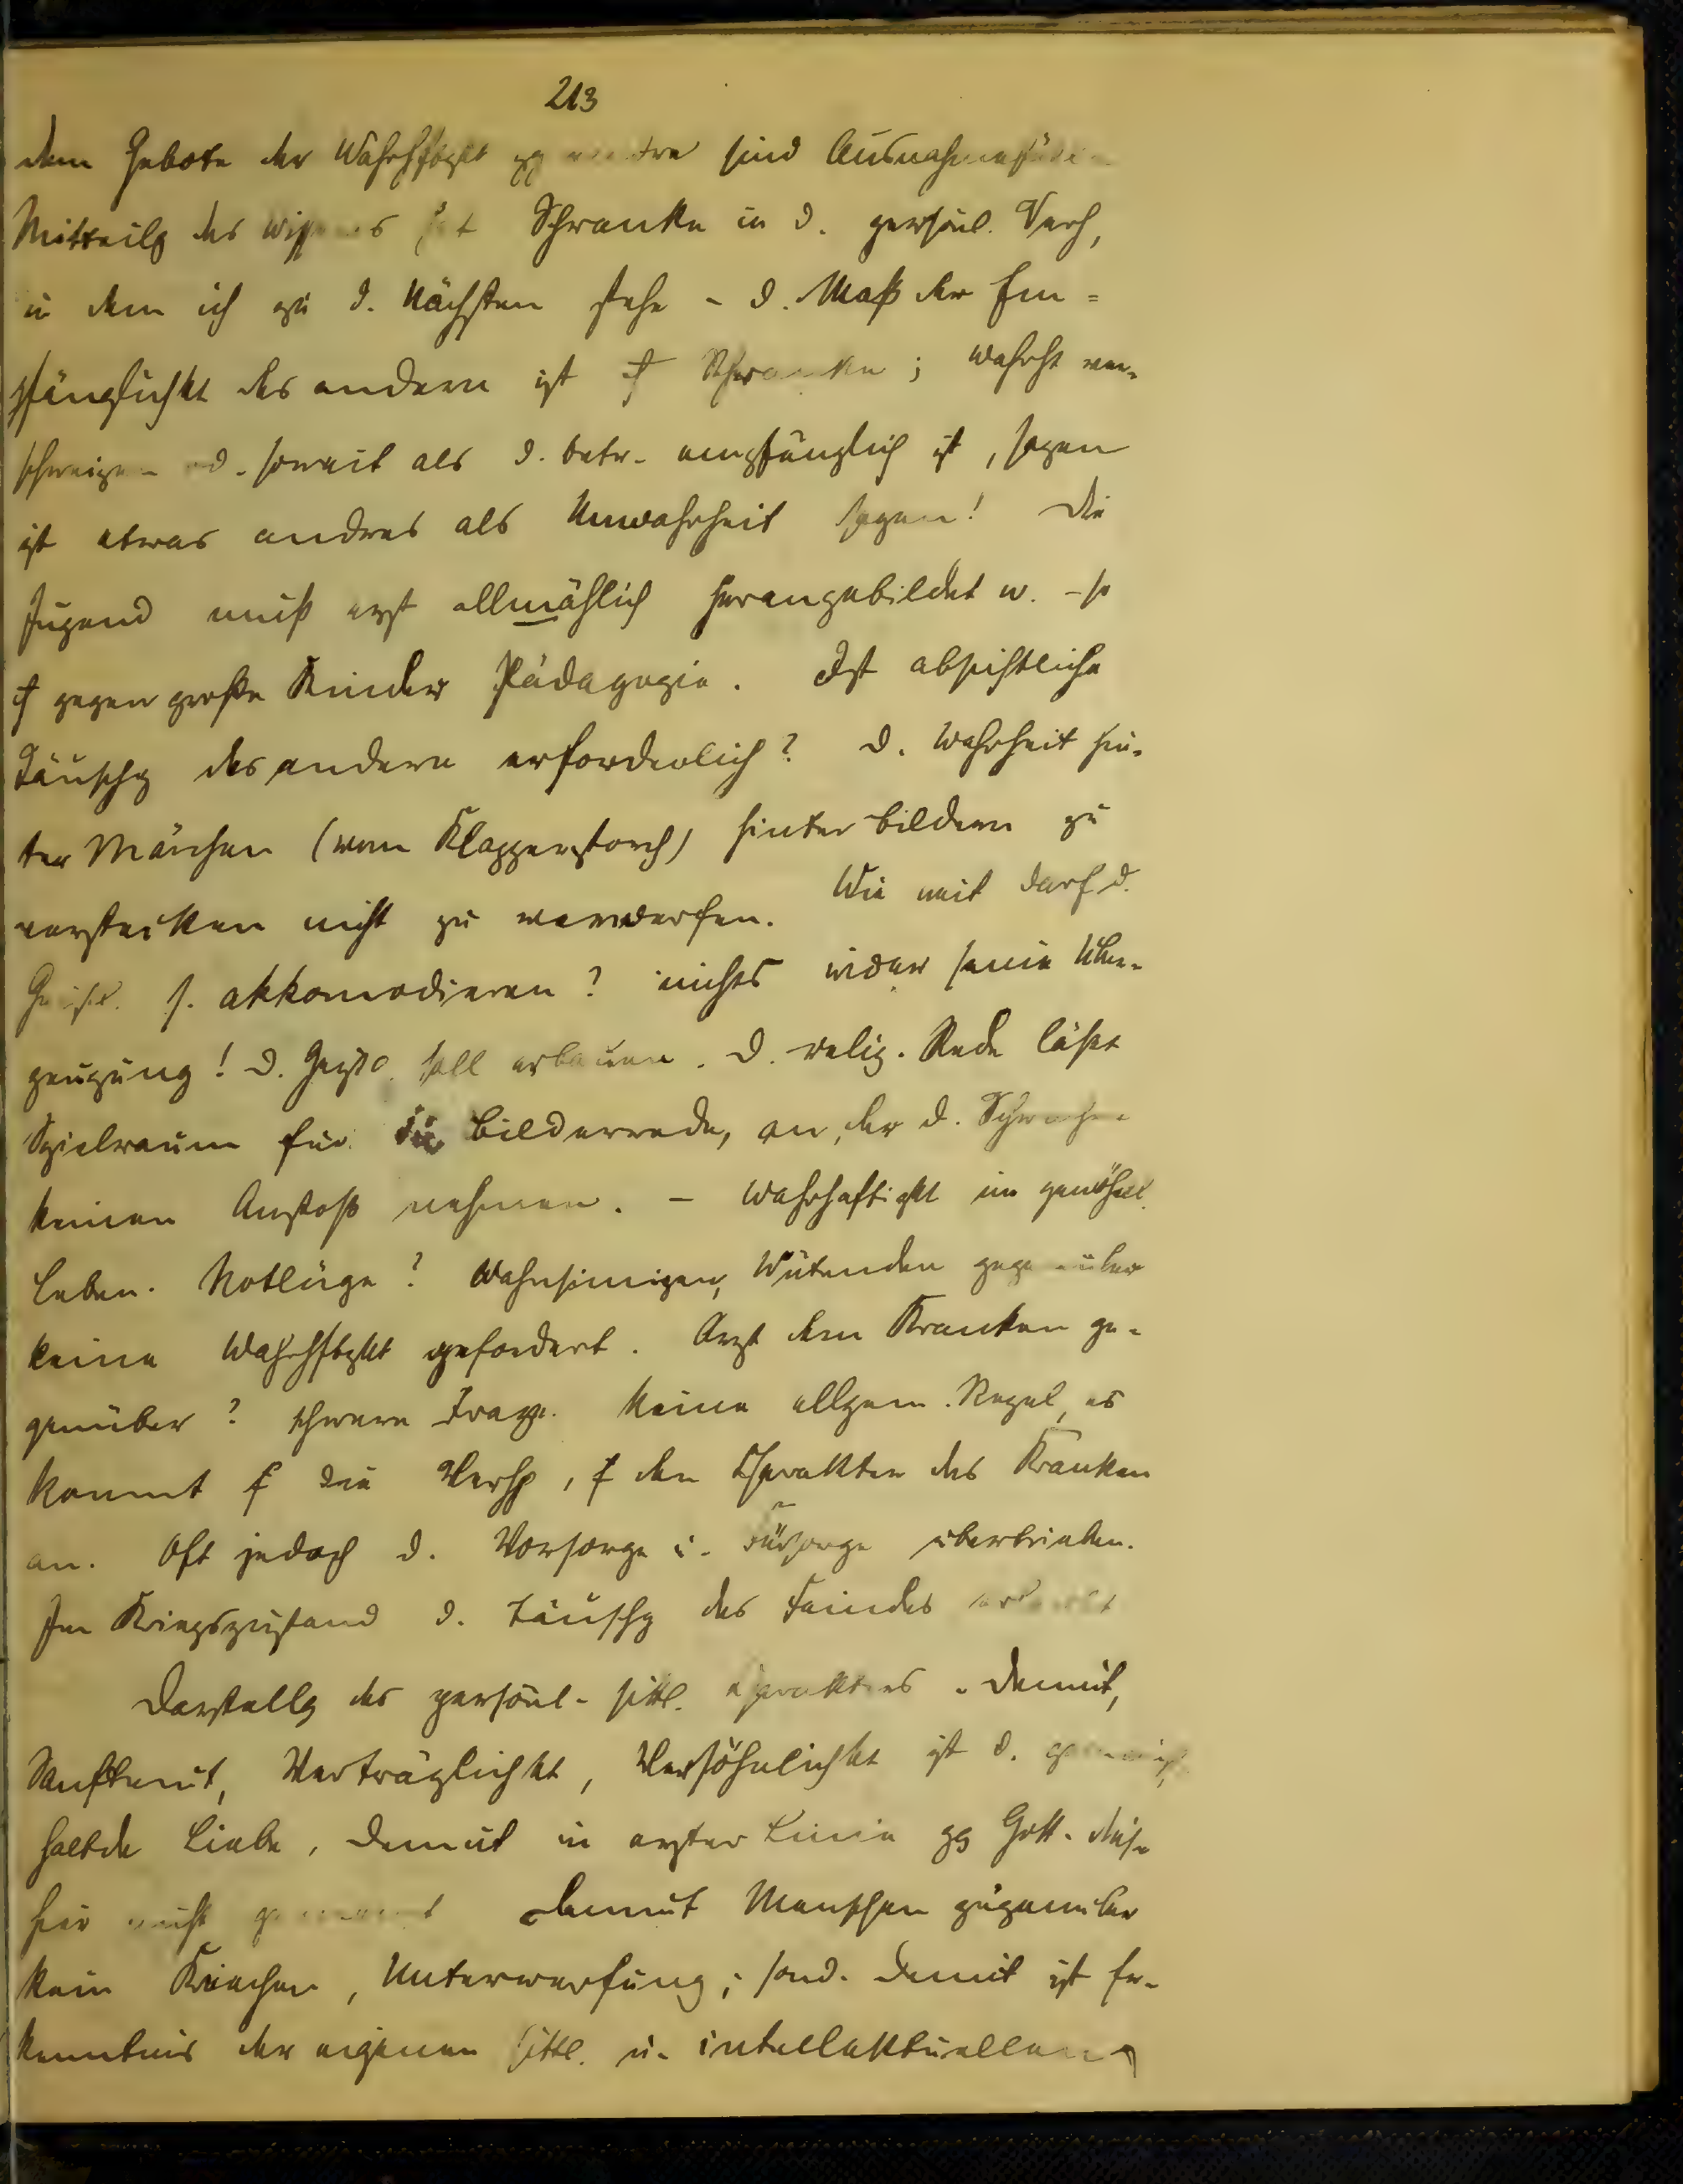 213
dem Gebote der Wahrhftgkt gg andre sind Ausnahmefälle
Mitteilg des Wissens hat Schranke in d. persönl. Verh,
in dem ich zu d. Nächsten stehe - d. Maß der Em=
pfänglichkt des andern ist Schranke; Wahrht ver-
schweigen od. soweit als d. betr. empfänglich ist, sagen
ist etwas andres als Unwahrheit sagen! Die
Jugend muß erst allmählich herangebildet w. - so
gegen große Kinder Pädagogie. Ist absichtliche
Täuschg des andern erforderlich? D. Wahrheit hin-
ter Märchen (vom Klapperstorch) hinter Bildern zu
verstecken nicht zu verwerfen. Wie weit darf d.
Geistl. s. akkomodieren? nichts wider seine Über-
zeugung! D. Geistl. soll erbauen. D. relig. Rede läßt
Spielraum für die Bilderrede, an der d. Schwachen
keinen Anstoß nehmen. - Wahrhaftigkt im gewöhnl.
Leben. Notlüge? Wahnsinnigen, Wütenden gegenüber
keine Wahrhftgkt gefordert. Arzt dem Kranken ge-
genüber? schwere Frage. Keine allgem. Regel, es
kommt f die Verh, f den Charakter des Kranken
an. Oft jedoch d. Vorsorge u. Fürsorge übertrieben.
Im Kriegszustand d. Täuschg des Feindes erlaubt
Darstellg des persönl- sittl. Charakters. Demut,
Sanftmut, Verträglichkt, Versöhnlichkt ist d.
haltde Liebe. Demut in erster Linie gg Gott. diese
hier nicht gemeint Demut Menschen gegenüber
kein Kriechen, Unterwerfung; sond. Demut ist Er-
kenntnis der eigenen sittl. u. intellektuellen